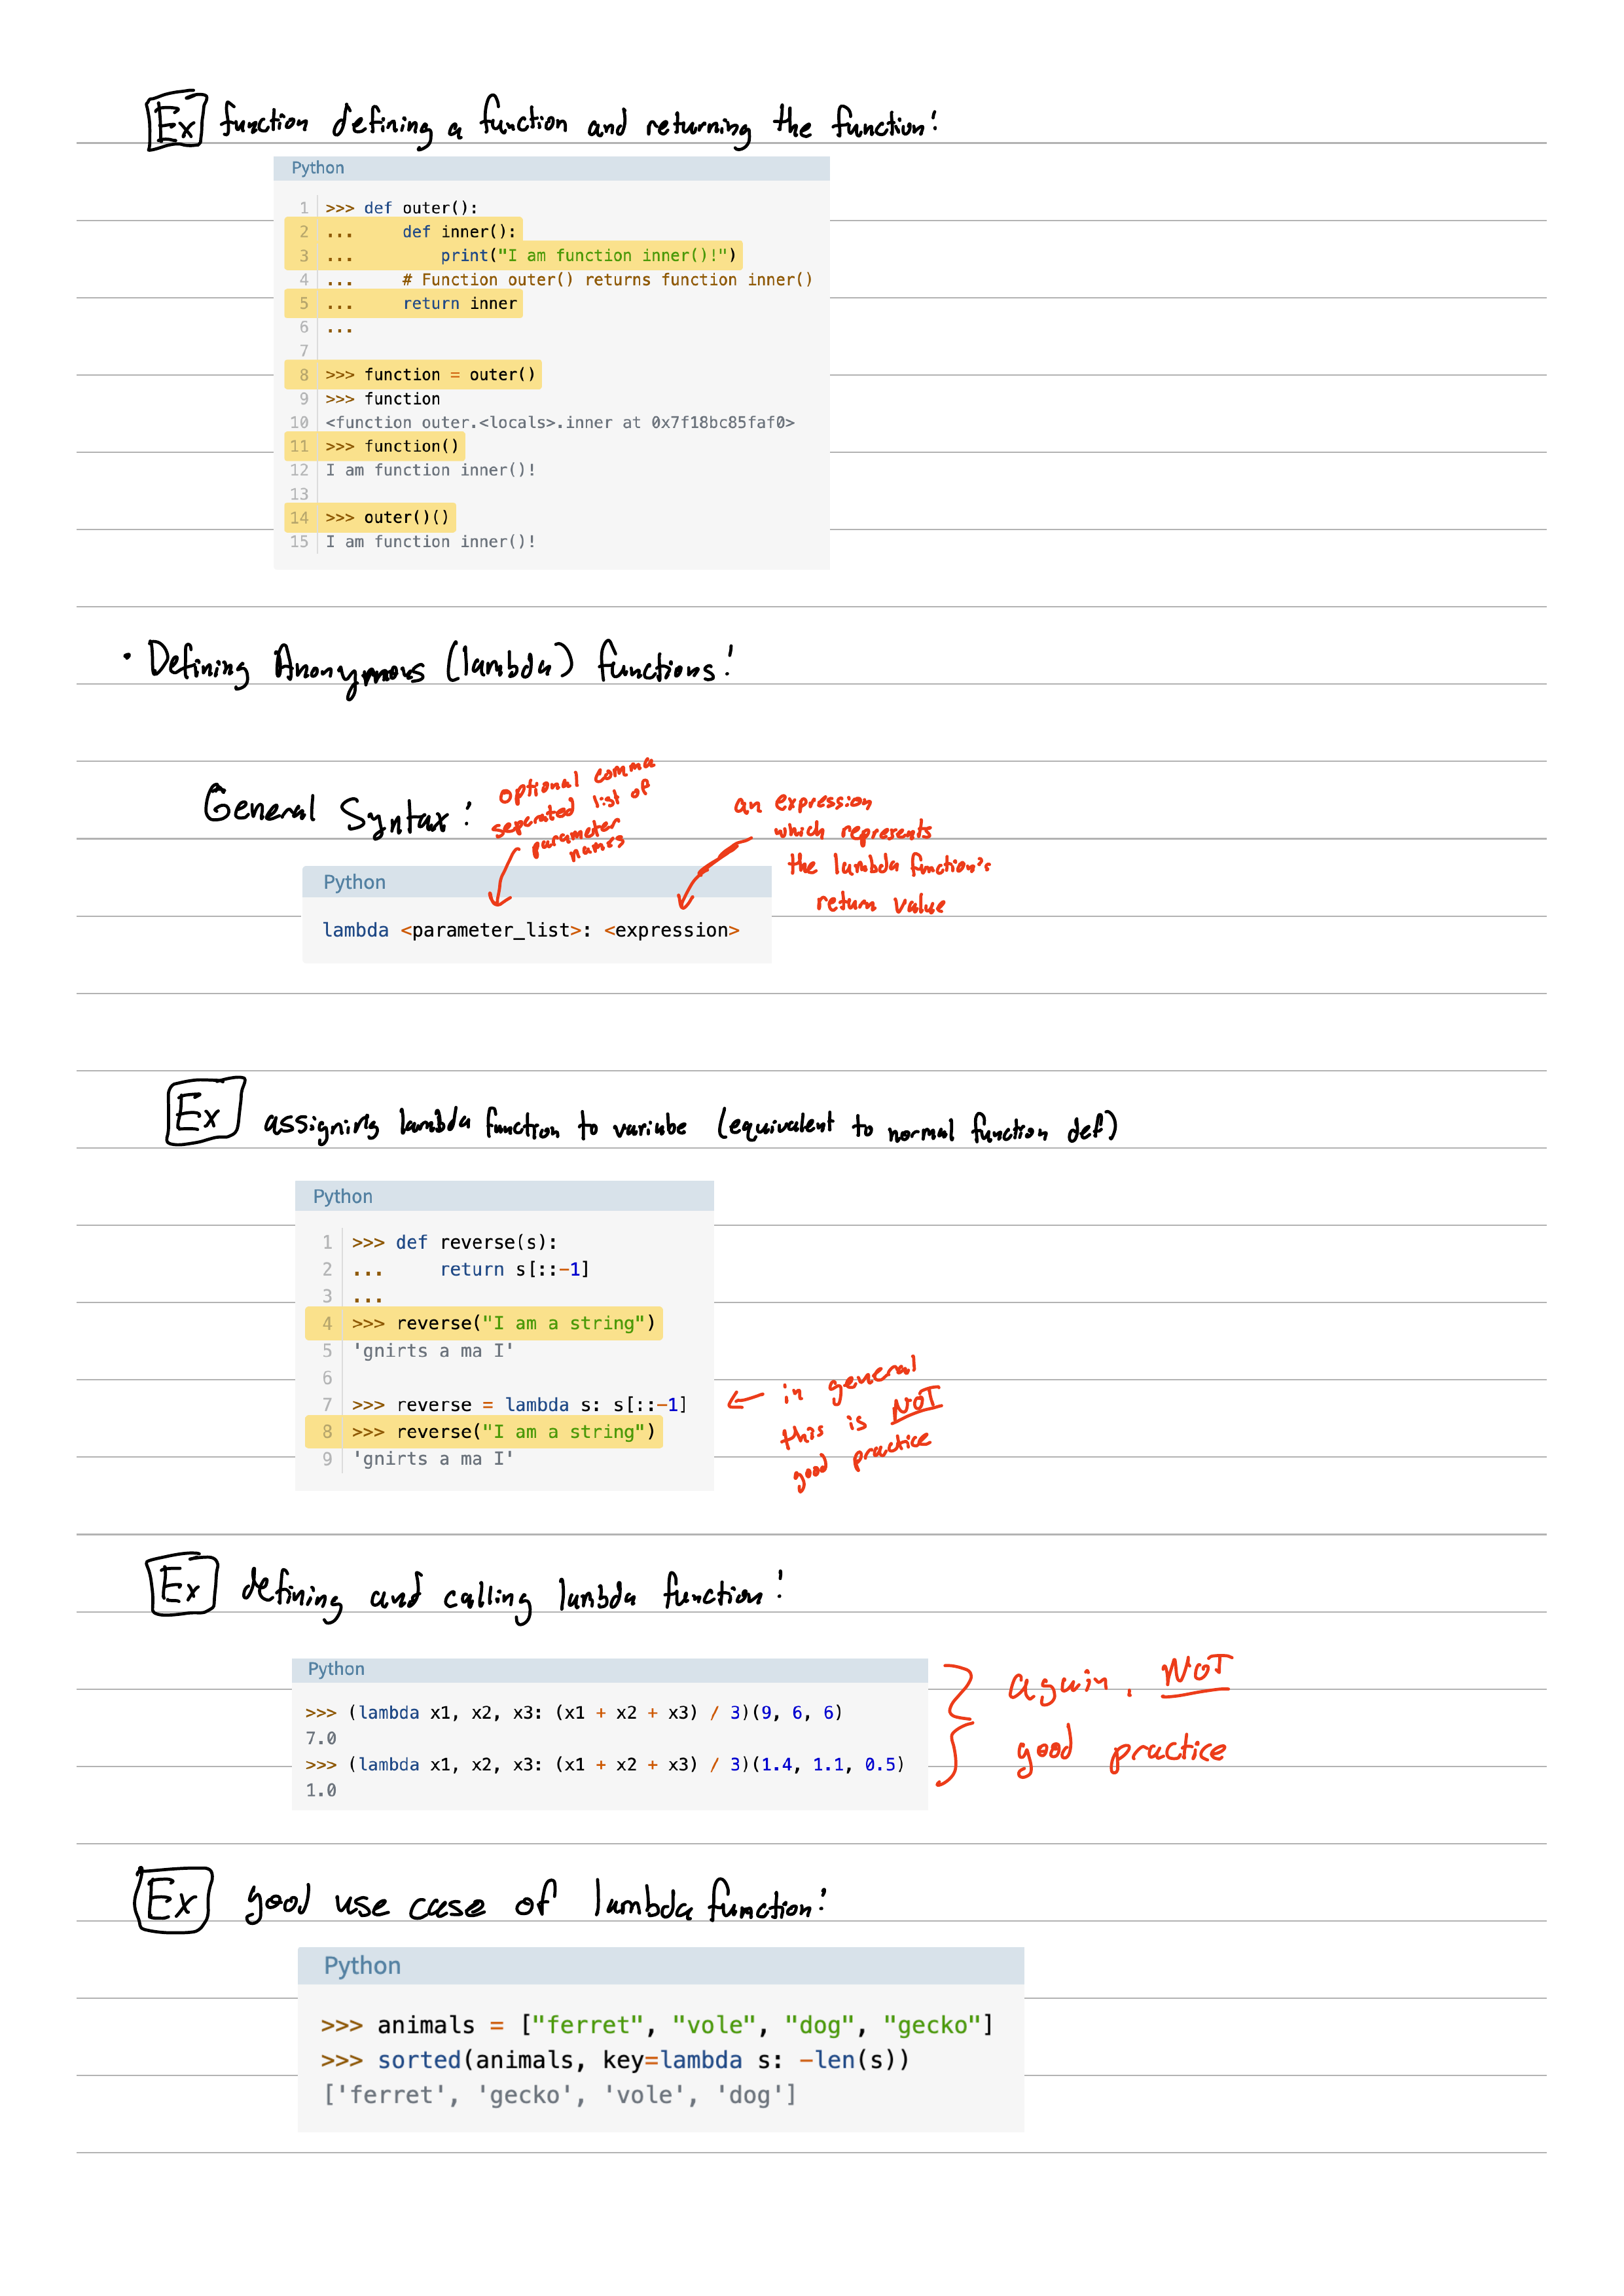 Ex function defining a function and returning the function:
Python
1 >>> def outer():
2 ...     def inner():
3 ...         print("I am function inner()!")
4 ...     # Function outer() returns function inner()
5 ...     return inner
6 ...
7
8 >>> function = outer()
9 >>> function
10 <function outer.<locals>.inner at 0x7f18bc85faf0>
11 >>> function()
12 I am function inner()!
13
14 >>> outer()()
15 I am function inner()!
• Defining Anonymous (lambda) functions:
General Syntax:
optional comma
separated list of
parameter
names
an expression
which represents
the lambda function's
return value
Python
lambda <parameter_list>: <expression>
Ex assigning lambda function to variabe (equivalent to normal function def)
Python
1 >>> def reverse(s):
2 ...     return s[::-1]
3 ...
4 >>> reverse("I am a string")
5 'gnirts a ma I'
6
7 >>> reverse = lambda s: s[::-1]
8 >>> reverse("I am a string")
9 'gnirts a ma I'
← in general
this is NOT
good practice
Ex defining and calling lambda function:
Python
>>> (lambda x1, x2, x3: (x1 + x2 + x3) / 3)(9, 6, 6)
7.0
>>> (lambda x1, x2, x3: (x1 + x2 + x3) / 3)(1.4, 1.1, 0.5)
1.0
again, NOT
good practice
Ex good use case of lambda function:
Python
>>> animals = ["ferret", "vole", "dog", "gecko"]
>>> sorted(animals, key=lambda s: -len(s))
['ferret', 'gecko', 'vole', 'dog']